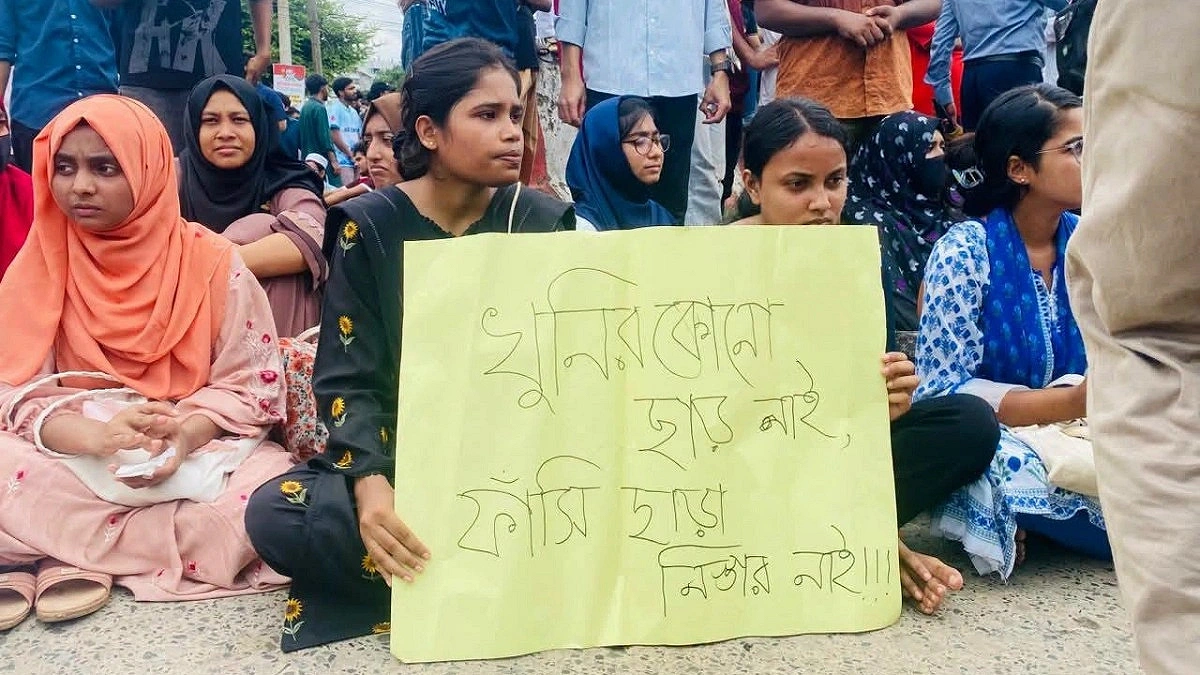 খুনির কোনো
ছাড় নাই,
ফাঁসি ছাড়া
নিস্তার নাই!!!